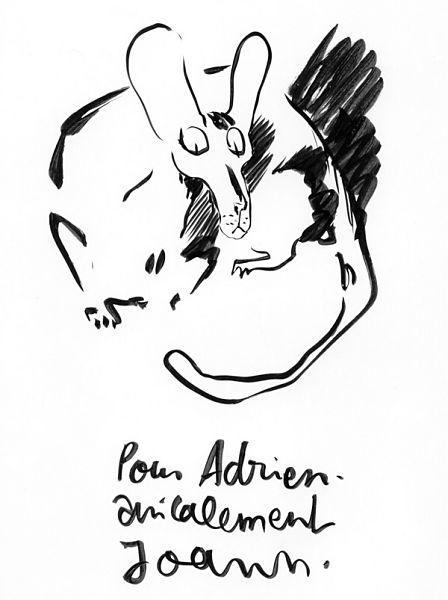 Pour Adrien.
amicalement
Joann.